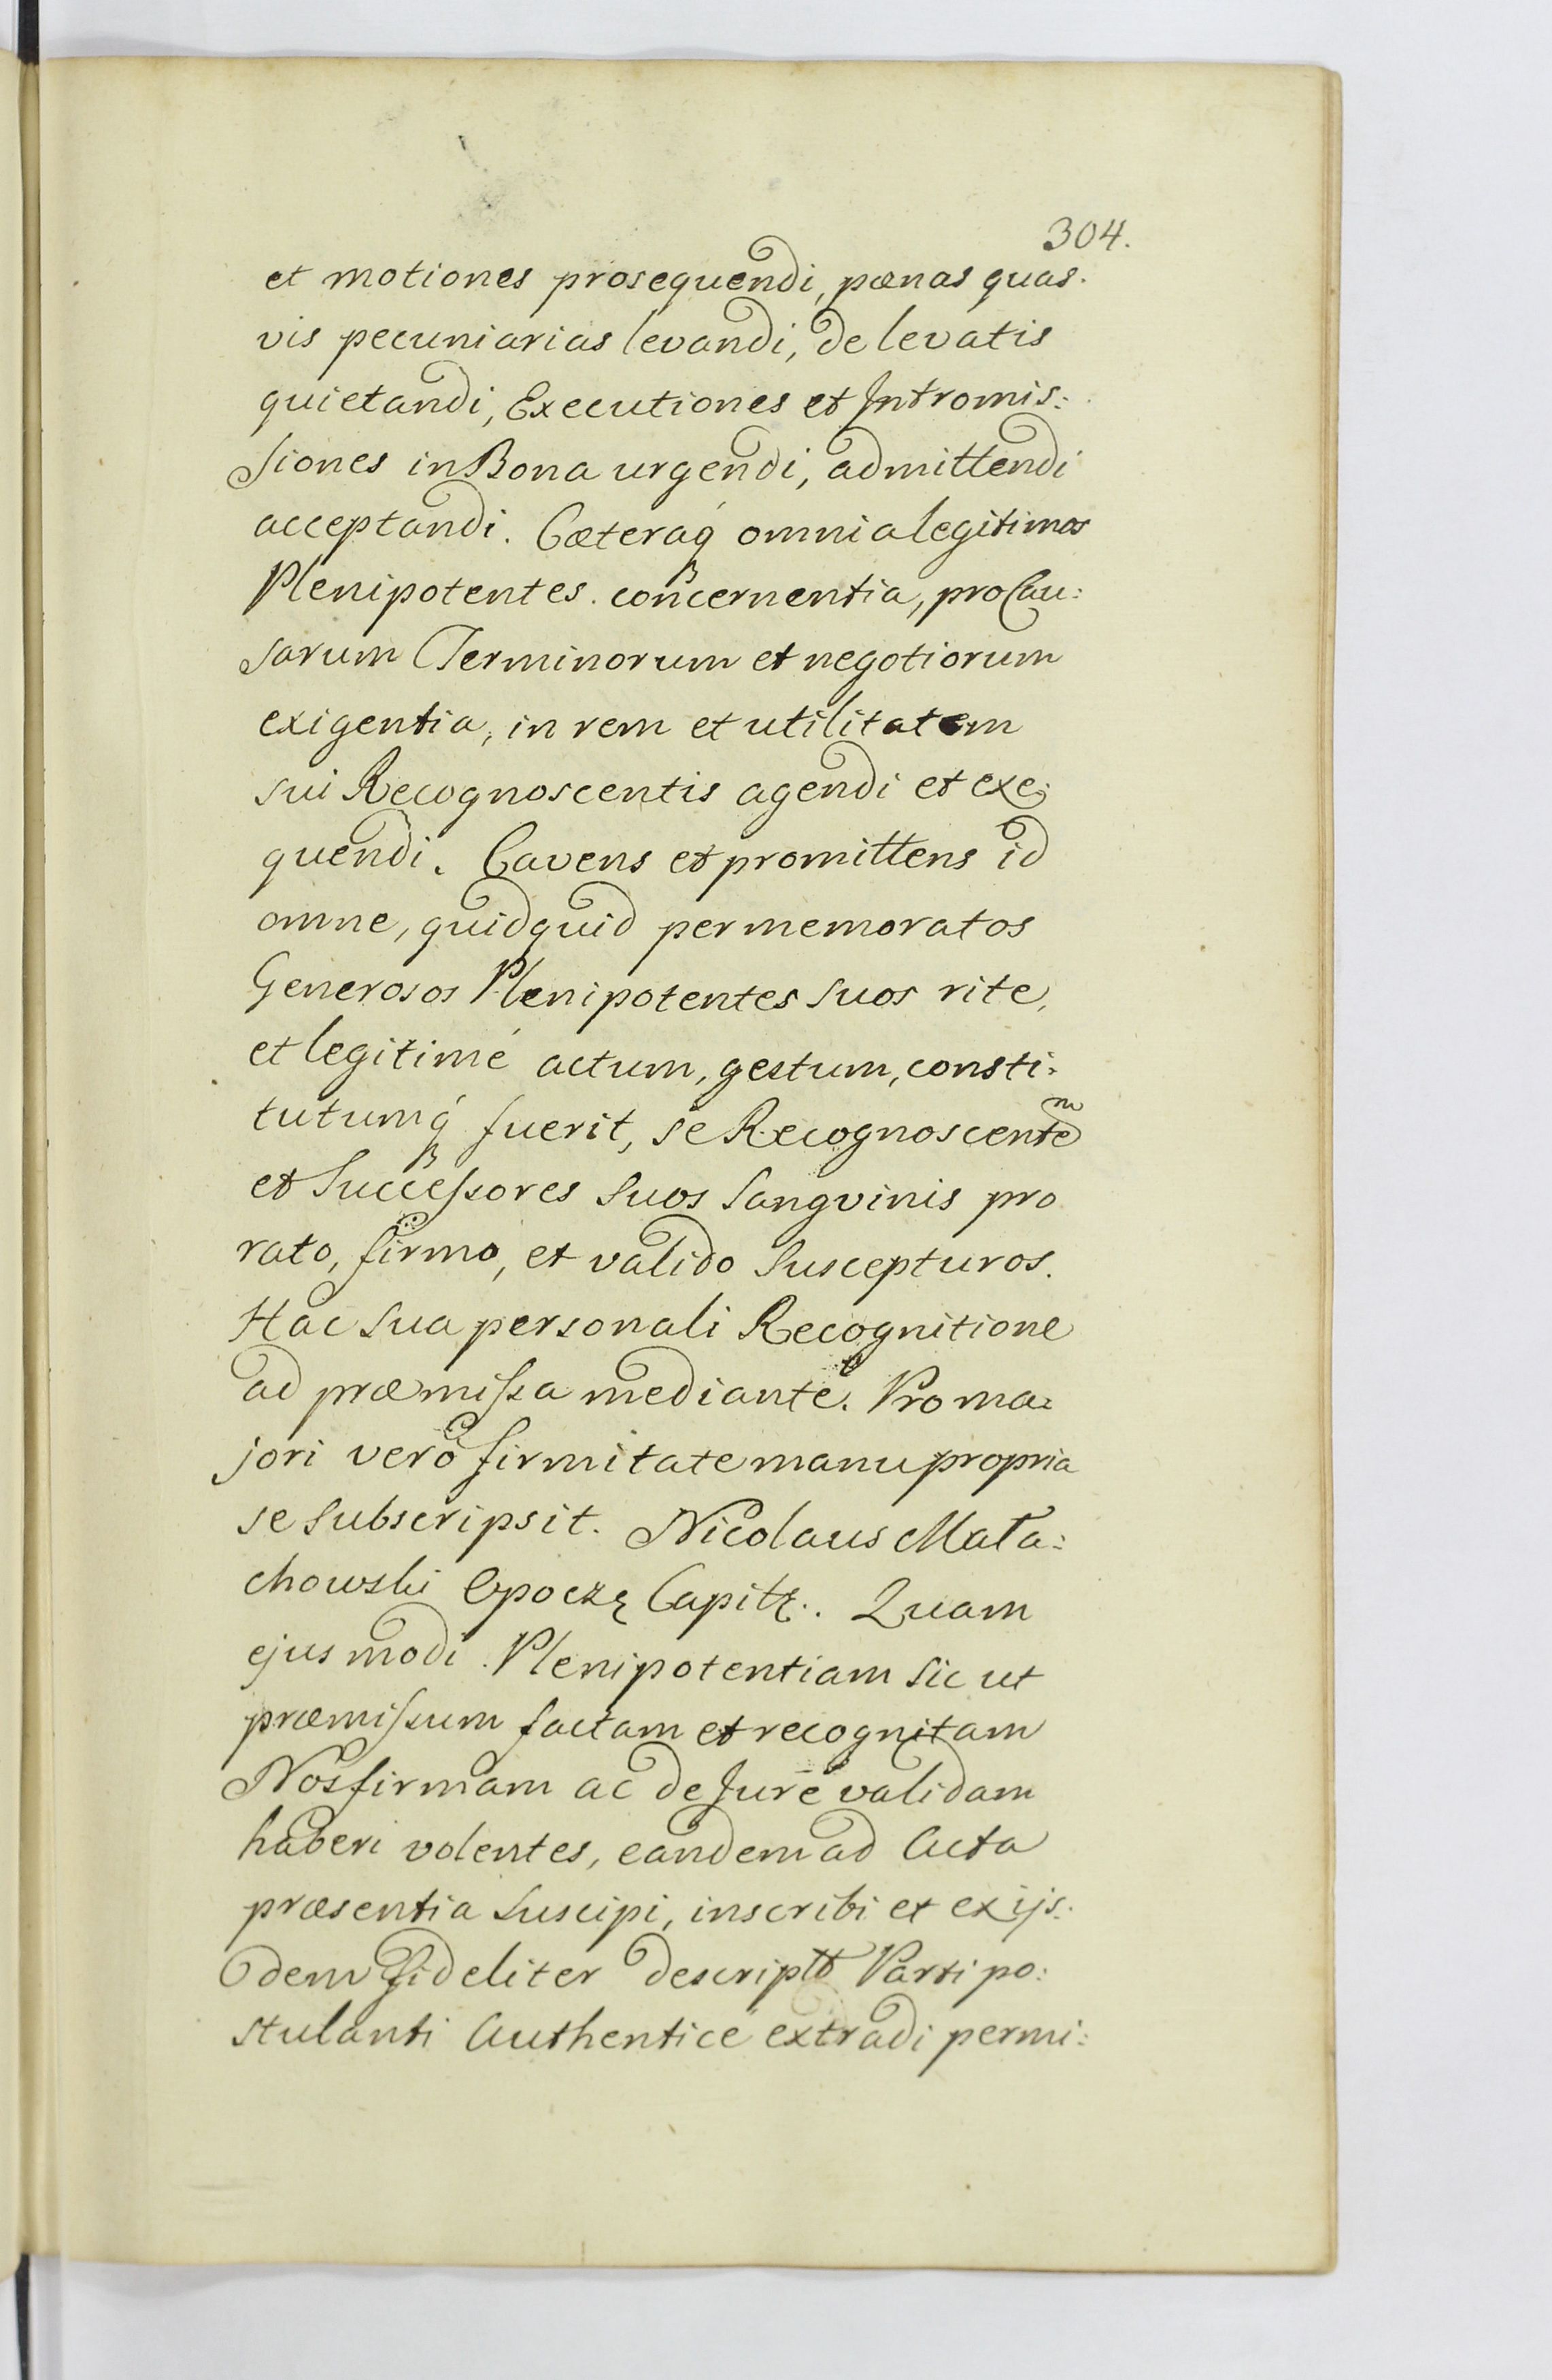 304.
et motiones prosequendi, pœnas quas.
vis pecuniarias levandi, de levatis
quietandi, Executiones et Intromis:
siones in Bona urgendi, admittendi
acceptandi. Cæteraq́ omnia legitimos
Plenipotentes. concernentia, pro Cau:
sarum Terminorum et negotiorum
exigentia, in rem et utilitatem
sui Recognoscentis agendi et exe:
quendi. Cavens et promittens id
omne, quidquid per memoratos
Generosos Plenipotentes suos rite,
et legitimé actum, gestum, consti:
tutumq́ fuerit, se Recognoscentem
et Succeſsores suos sangvinis pro
rato, firmo, et valido suscepturos.
Hac sua personali Recognitione
ad præmiſsa mediante. Pro ma:
jori verò firmitate manu propria
se subscripsit. Nicolaus Mała:
chowski Opoczę Capitę. Quam
ejusmodi Plenipotentiam sic ut
præmiſsum factam et recognitam
Nos firmam ac de Jure validam
haberi volentes, eandem ad Acta
præsentia suscipi, inscribi et ex ijs:
dem fideliter descriptā Parti po:
stulanti Authentice extradi permi: